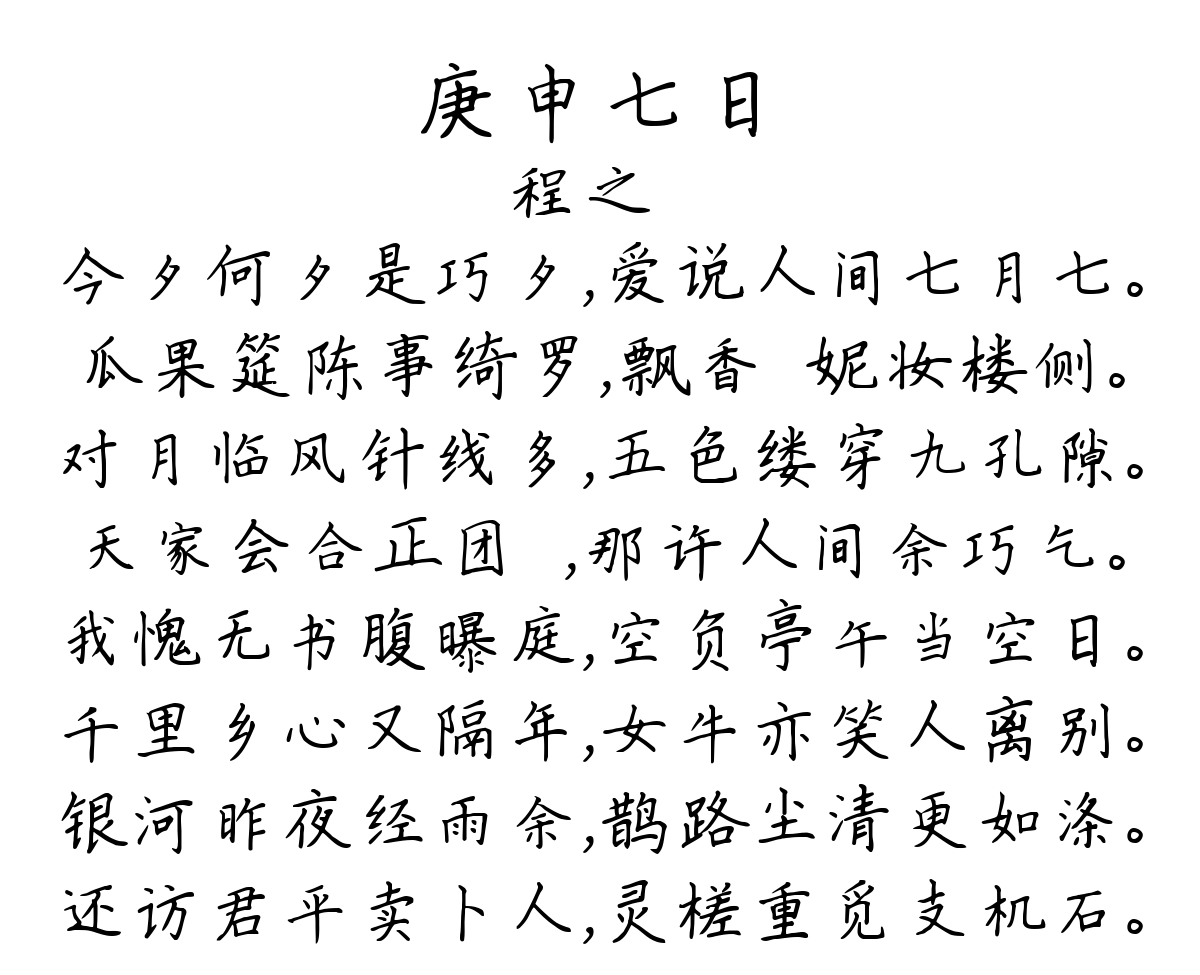 庚申七日
程之
今夕何夕是巧夕,爱说人间七月七。
瓜果筵陈事绮罗,飘香 妮妆楼侧。
对月临风针线多,五色缕穿九孔隙。
天家会合正团 ,那许人间余巧乞。
我愧无书腹曝庭,空负亭午当空日。
千里乡心又隔年,女牛亦笑人离别。
银河昨夜经雨余,鹊路尘清更如涤。
还访君平卖卜人,灵槎重觅支机石。